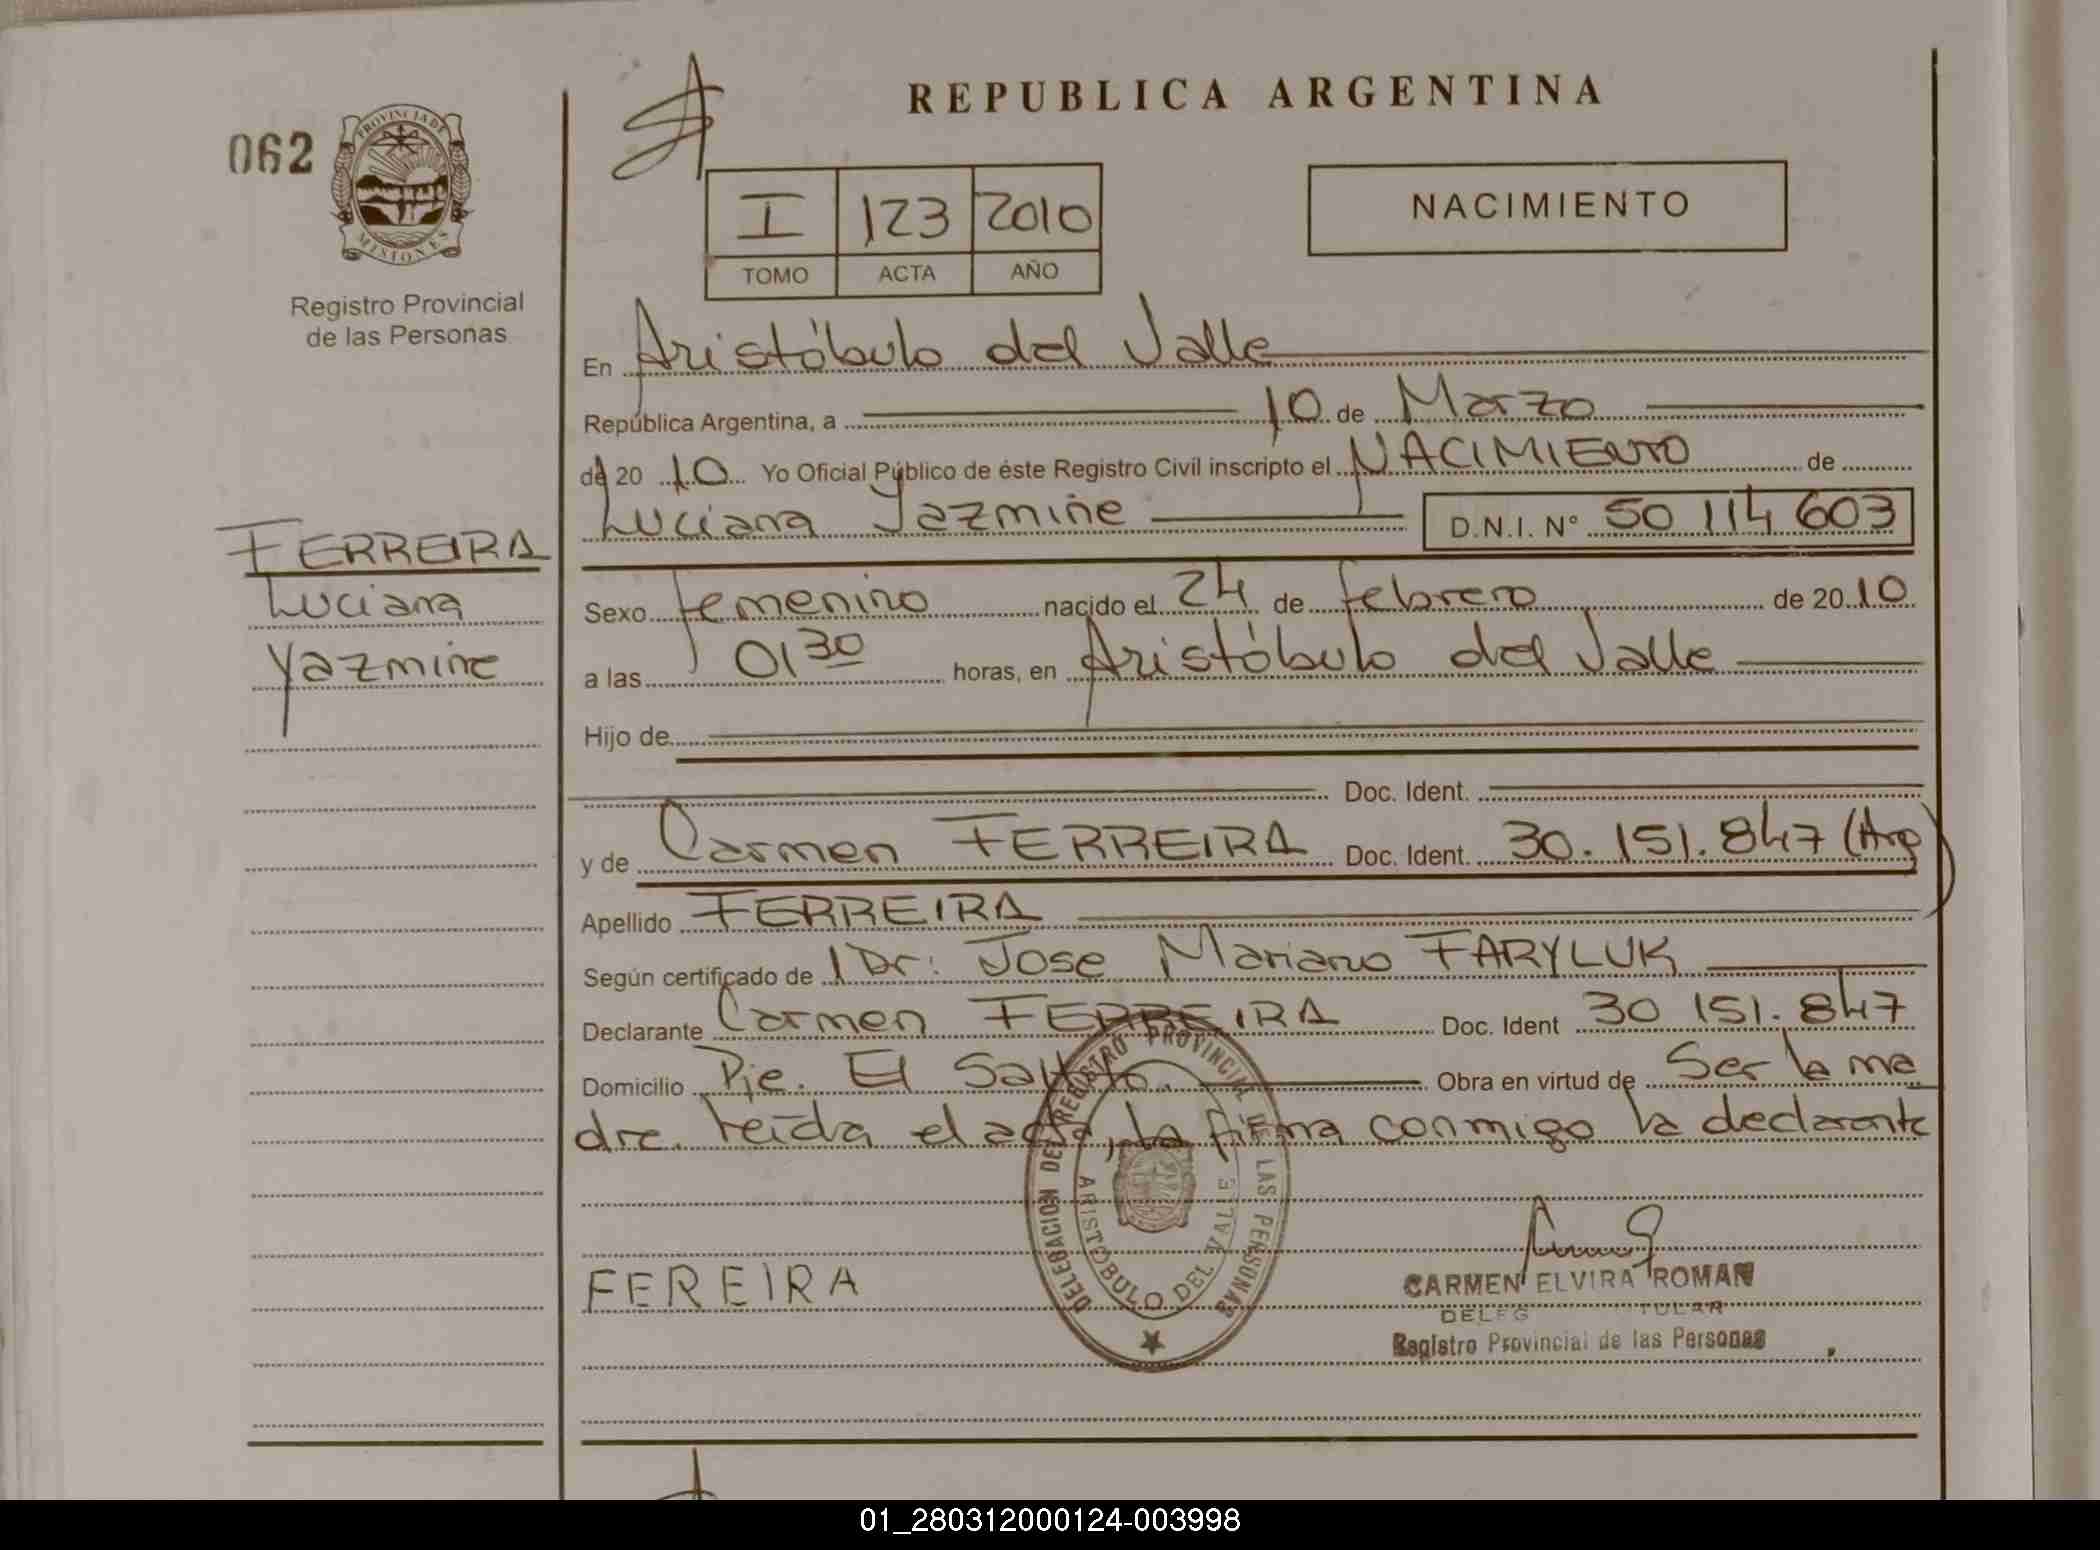 REPUBLICA ARGENTINA
062
PROVINCIA DE
MISIONES
Registro Provincial
de las Personas
I 123 2010
TOMO ACTA AÑO
NACIMIENTO
En Aristóbulo del Valle
República Argentina, a 10 de Marzo
de 20 10 Yo Oficial Público de éste Registro Civil inscripto el NACIMIENTO de
Luciana Yazmine D.N.I. N° 50 114 603
FERREIRA
Luciana
Yazmine
Sexo femenino nacido el 24 de febrero de 20 10
a las 01 30 horas, en Aristóbulo del Valle
Hijo de
Doc. Ident.
y de Carmen FERREIRA Doc. Ident. 30.151.847 (Arg)
Apellido FERREIRA
Según certificado de Dr: Jose Mariano FARYLUK
Declarante Carmen FERREIRA Doc. Ident 30 151.847
Domicilio Pje. El Saltito. Obra en virtud de Ser la ma
dre. Leída el acta, la firma conmigo la declarante
DELEGACION DEL REGISTRO PROVINCIAL DE LAS PERSONAS
ARISTOBULO DEL VALLE
FEREIRA
CARMEN ELVIRA ROMAN
Registro Provincial de las Personas
01_280312000124-003998